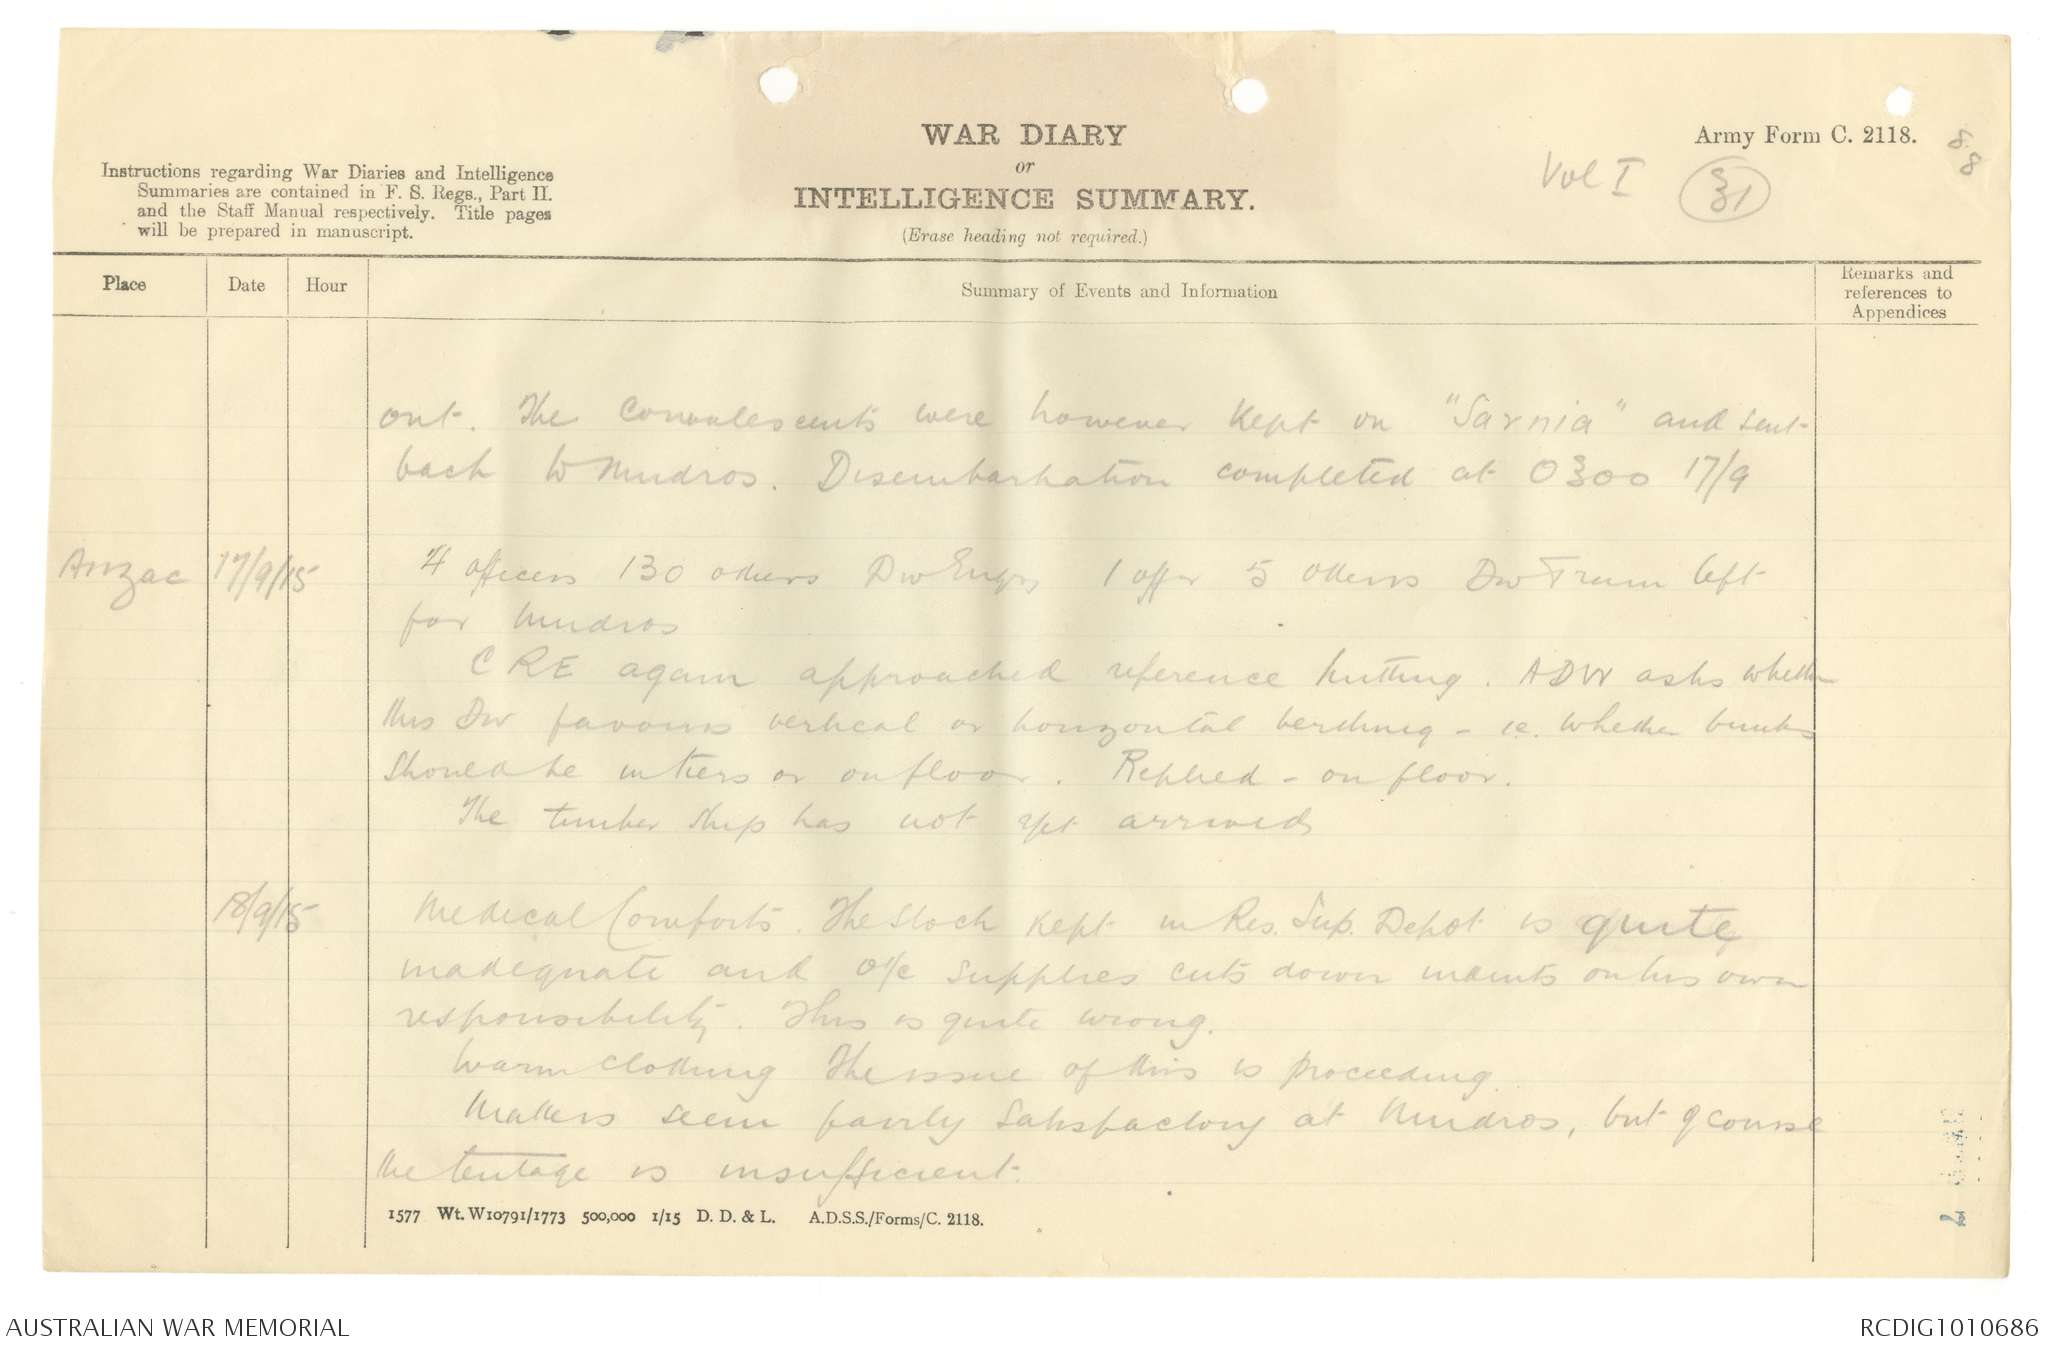 WAR DIARY
or
INTELLIGENCE SUMMARY.
(Erase heading not required.)
Army Form C. 2118.
88
Vol I
31
Instructions regarding War Diaries and Intelligence
Summaries are contained in F. S. Regs., Part II.
and the Staff Manual respectively. Title pages
will be prepared in manuscript.
Place
Date
Hour
Summary of Events and Information
Remarks and
references to
Appendices
out. The Convalescents were however kept on "Sarnia" and sent
back to Mudros. Disembarkation completed at 0300 17/9
Anzac 17/9/15 4 officers 130 others Div Engrs 1 offr 5 others Div Train left
for Mudros
CRE again approached reference hutting. ADW asks whether
this Div favours vertical or horizontal berthing - ie. whether bunks
should be in tiers or on floor. Replied - on floor.
The timber ship has not yet arrived
18/9/15 Medical Comforts. The stock kept in Res. Sup. Depot is quite
inadequate and O/c Supplies cuts down indents on his own
responsibility. This is quite wrong.
Warm clothing The issue of this is proceeding.
Matters seem fairly satisfactory at Mudros, but of course
the tentage is insufficient.
1577 Wt. W10791/1773 500,000 1/15 D. D. & L. A.D.S.S./Forms/C. 2118.
AUSTRALIAN WAR MEMORIAL
RCDIG1010686